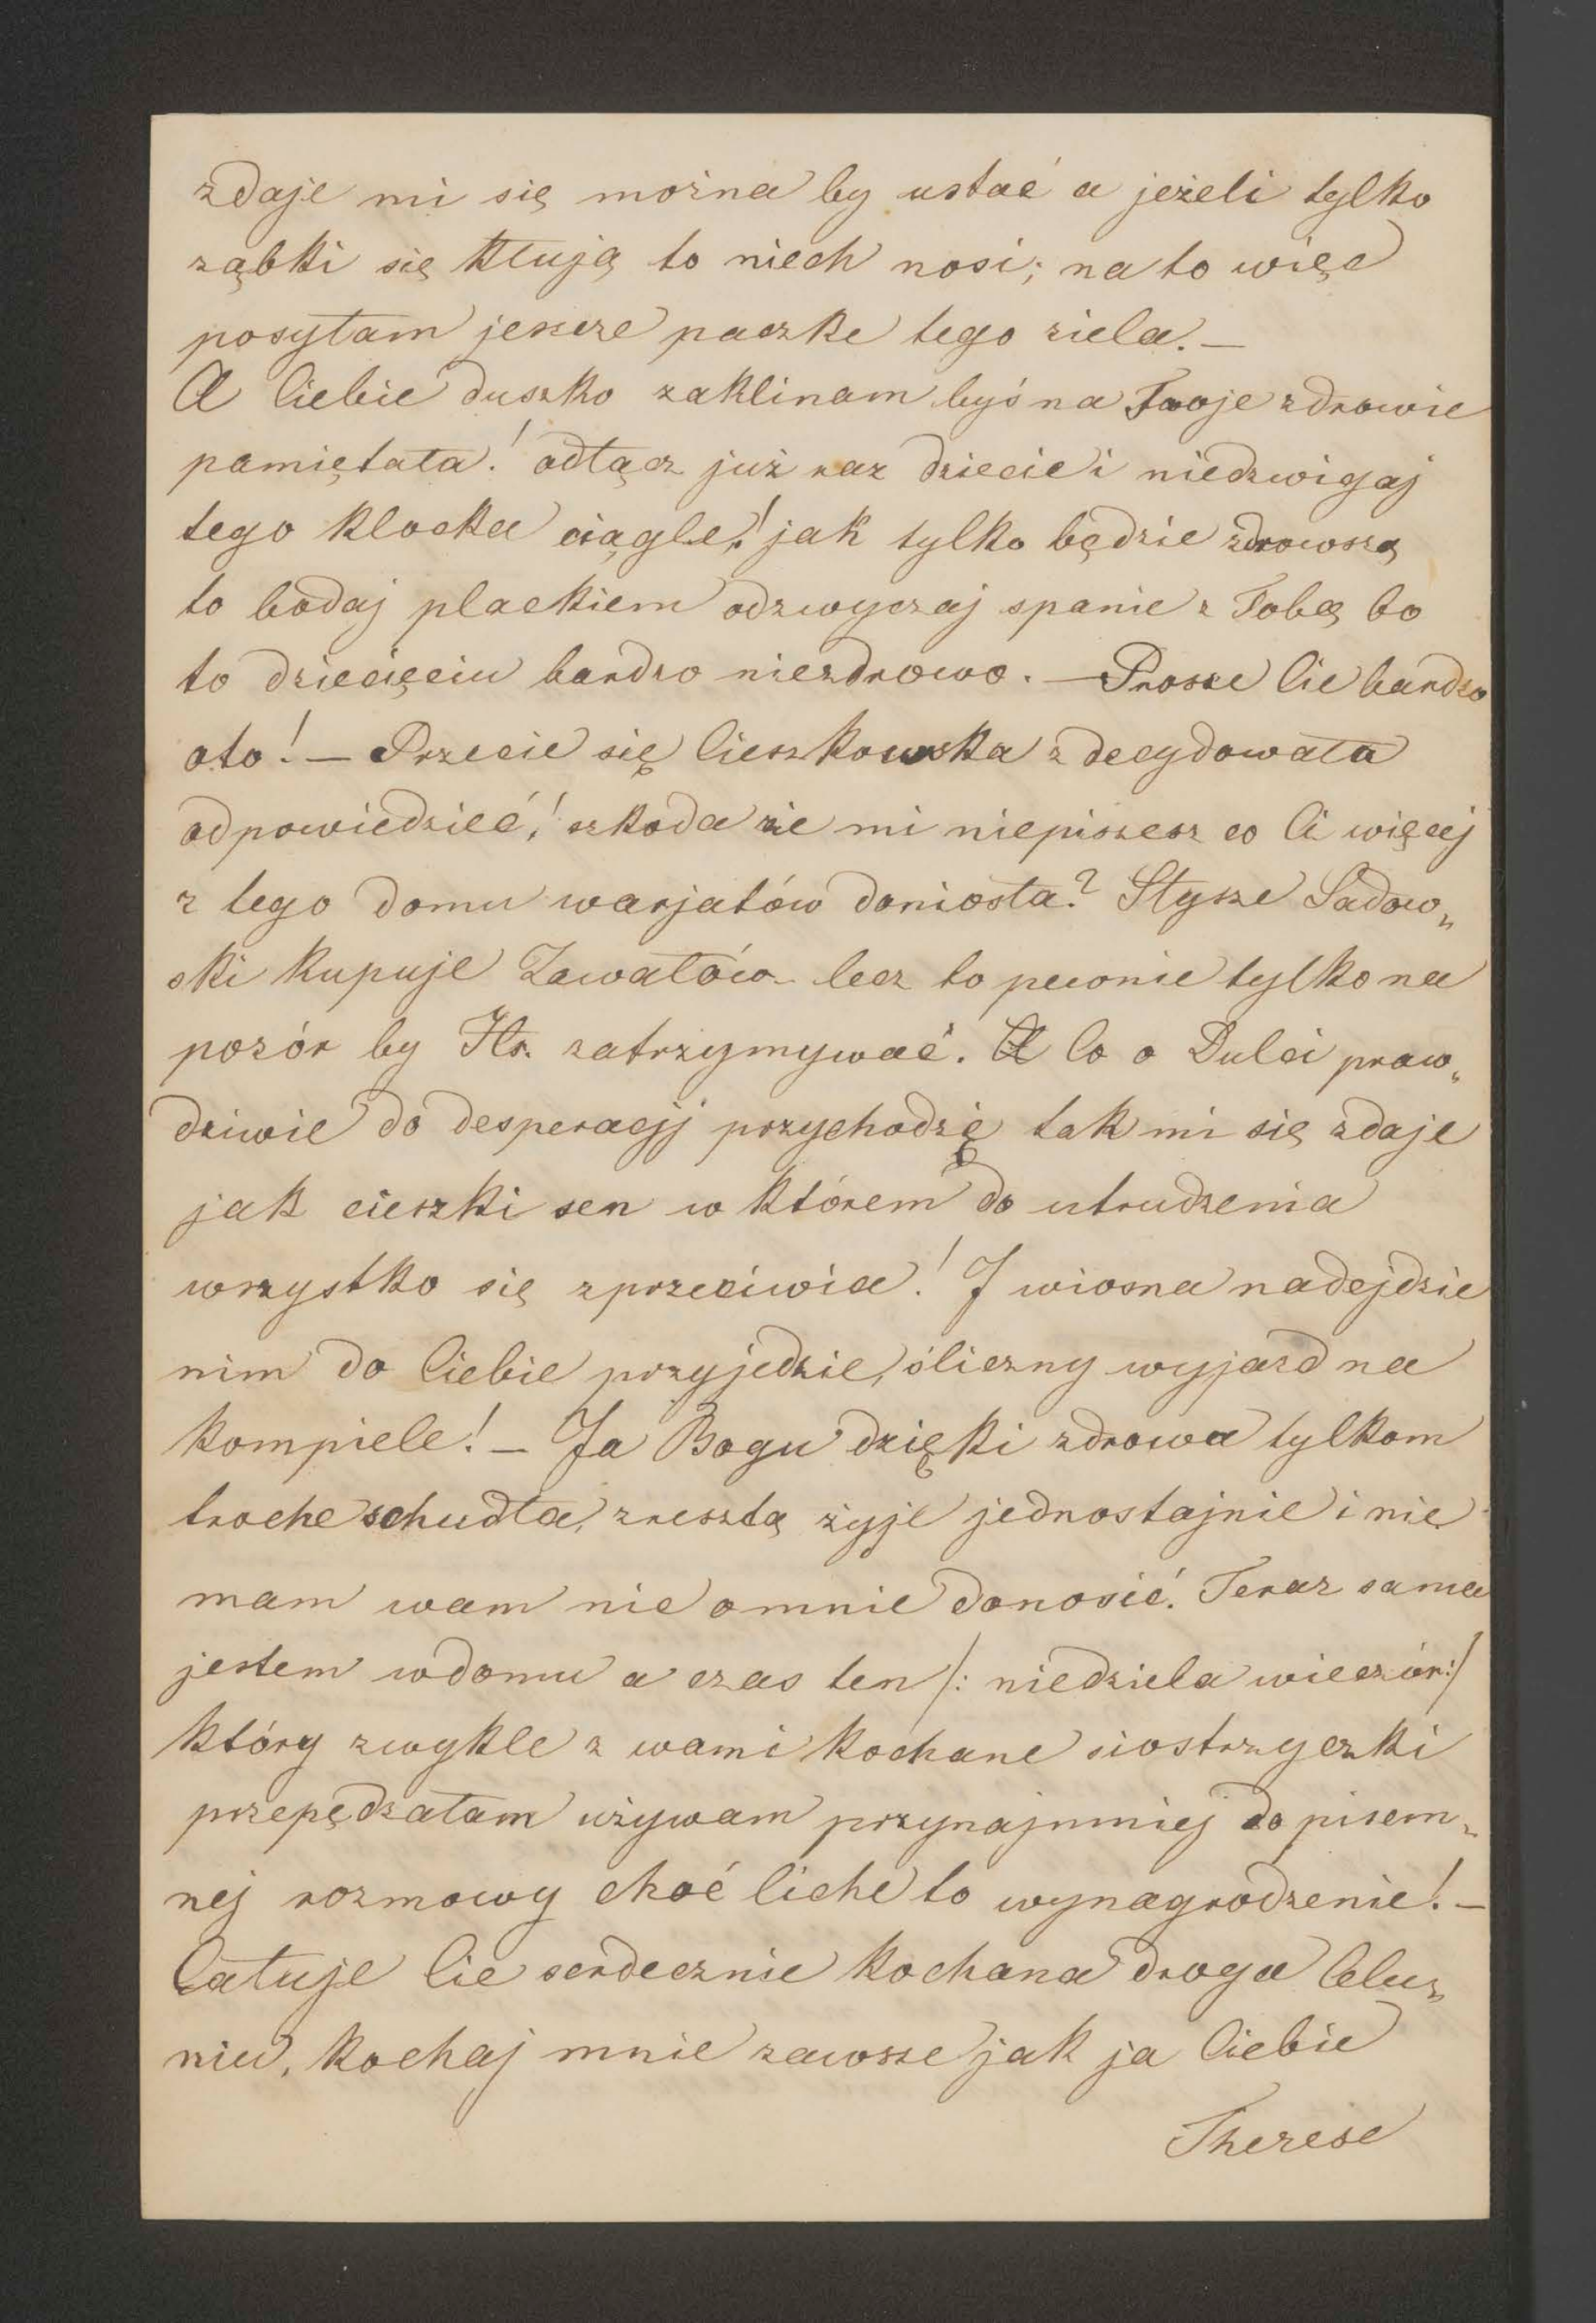 zdaje mi się można by ustać a jeżeli tylko
ząbki się kłują to niech nosi; na to więc
posyłam jeszcze paczke tego ziela. —
A Ciebie duszko zaklinam byś na Twoje zdrowie
pamiętała! odłącz już raz dziecie i niedzwigaj
tego klocka ciągle! jak tylko będzie zdrowszą
to bodaj plackiem odzwyczaj spanie z Tobą bo
to dziecięciu bardzo niezdrowo. — Prosze Cie bardzo
oto! — Przecie się Cieszkowska zdecydowała
odpowiedzieć! szkoda że mi niepiszesz co Ci więcej
z tego domu warjatów doniosła? Słysze Sadow„
ski kupuje Zawałów – lecz to pewnie tylko na
pozór by Hr. zatrzymywać. A Co o Dulci praw„
dziwie do desperacji przychodzię tak mi się zdaje
jak cieszki sen w którem do utrudzenia
wszystko się zprzeciwia! I wiosna nadejdzie
nim do Ciebie przyjedzie, śliczny wyjazd na
kompiele! — Ja Bogu dzięki zdrowa tylkom
troche schudła, zresztą żyje jednostajnie i nie
mam wam nic omnie donosić. Teraz sama
jestem wdomu a czas ten /: niedziela wieczór :/
który zwykle z wami kochane siostrzyczki
przepędzałam używam przynajmniej do pisem„
nej rozmowy choć liche to wynagrodzenie! —
Całuje Cie serdecznie kochana droga Celu„
niu, kochaj mnie zawsze jak ja Ciebie
Therese